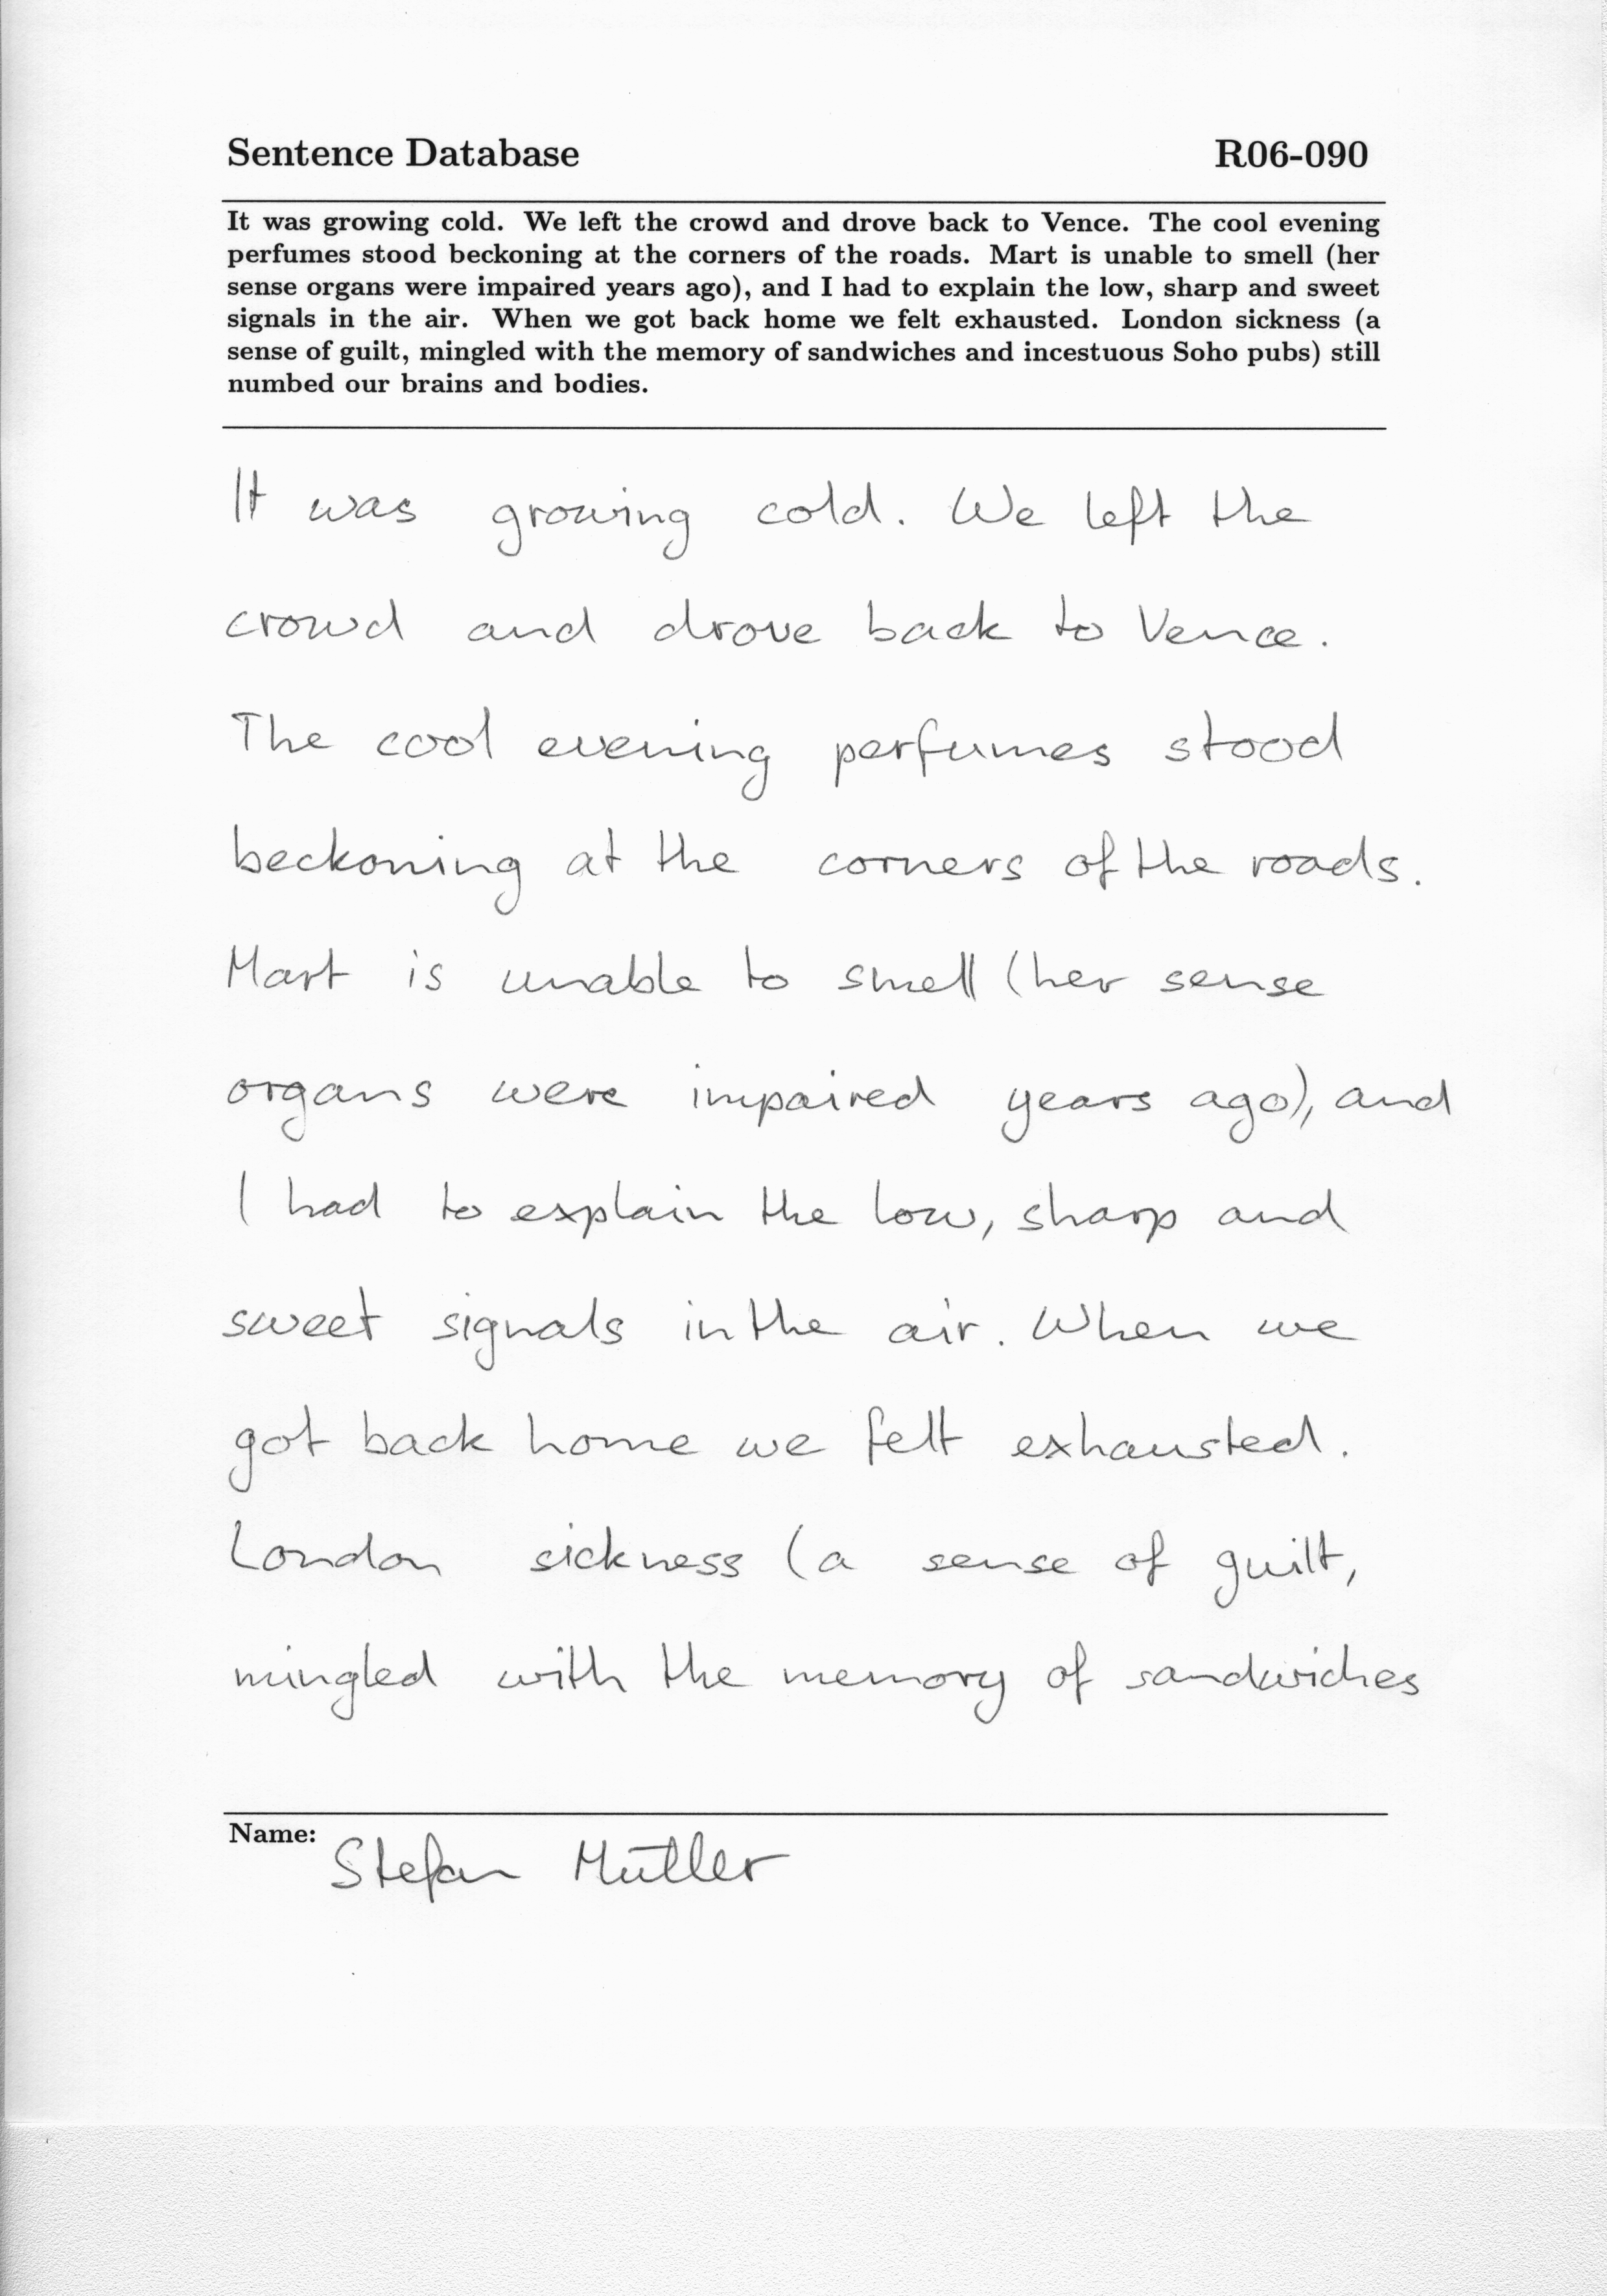 Sentence Database R06-090
It was growing cold. We left the crowd and drove back to Vence. The cool evening
perfumes stood beckoning at the corners of the roads. Mart is unable to smell (her
sense organs were impaired years ago), and I had to explain the low, sharp and sweet
signals in the air. When we got back home we felt exhausted. London sickness (a
sense of guilt, mingled with the memory of sandwiches and incestuous Soho pubs) still
numbed our brains and bodies.
It was growing cold. We left the
crowd and drove back to Vence.
The cool evening perfumes stood
beckoning at the corners of the roads.
Mart is unable to smell (her sense
organs were impaired years ago), and
I had to explain the low, sharp and
sweet signals in the air. When we
got back home we felt exhausted.
London sickness (a sense of guilt,
mingled with the memory of sandwiches
Name: Stefan Müller